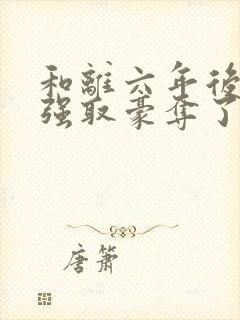 和離六年後
强取豪奪了
唐簫